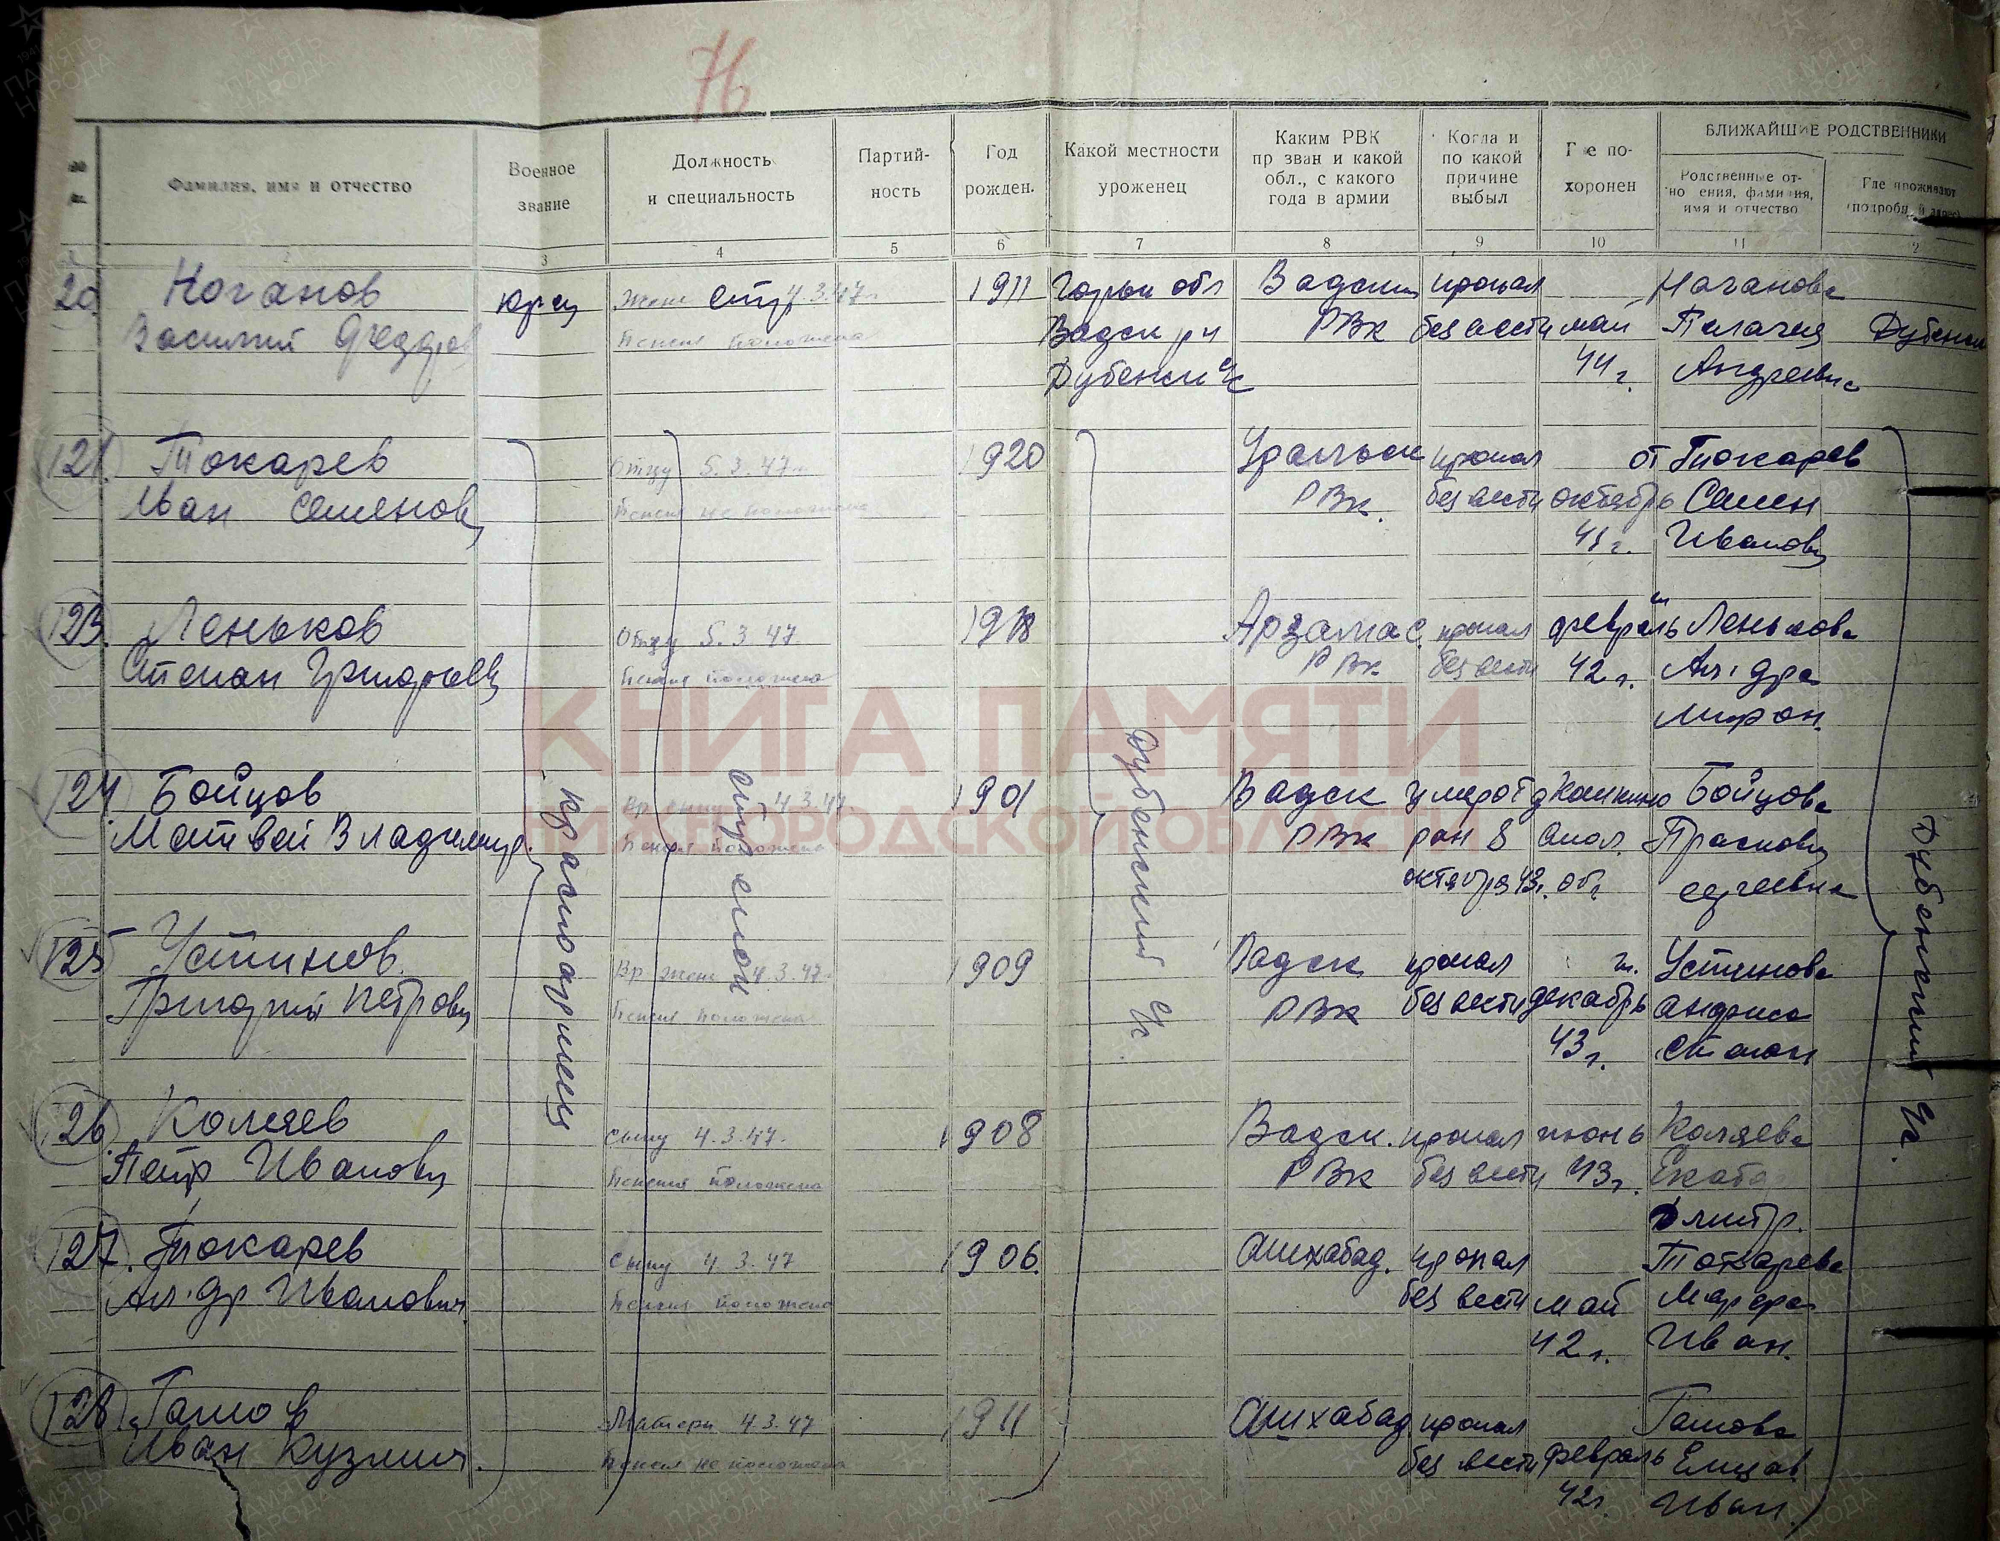 76
Фамилия, имя и отчество
Военное
звание
Должность
и специальность
Партий-
ность
Год
рожден.
Какой местности
уроженец
Каким РВК
пр зван и какой
обл., с какого
года в армии
Когда и
по какой
причине
выбыл
Где по-
хоронен
БЛИЖАЙШИЕ РОДСТВЕННИКИ
Родственные от-
но ения, фамилия,
имя и отчество
Где проживают
3 4 5 6 7 8 9 10 11
Ноганов 1911 Горьк обл Вадски пропал Наганова
Василий Федоров Пенсия положена Вадск рн РВК без вести май Пелагея Дубенки
Дубенки 44 г. Андреевна
121. Токарев Отцу 5.3.47 1920 Уральск пропал от Токарев
Иван Семенов Пенсия не положена РВК. без вести октябрь Семен
41 г. Иванов
123. Леньков Отцу 5.3.47 1918 Арзамас. пропал февраль Ленькова
Степан Григорьев Пенсия положена РВК без вести 42 г. Ал.дра
Мирон.
124. Бойцов 4.3.47 1901 Вадск умер от Бойцова
Матвей Владимир. Пенсия положена РВК ран 8 Смол. Прасковья
октября 43г. обл
125 Устинов. Вр жене 4.3.47г 1909 Вадск пропал ж. Устинова
Григорий Петрович Пенсия положена РВК без вести декабрь
43 г. Степан
красноармеец
стрелок
Дубенский с/с
Дубенский с/с.
126 Коляев сыну 4.3.47. 1908 Вадск. пропал июнь Коляева
Петр Иванович Пенсия положена РВК без вести 43г. Екатер
Дмитр.
127. Токарев сыну 4 3.47 1906. Ашхабад. пропал Токарева
Ал.др Иванович. Пенсия положена без вести май Марфа
42 г. Иван.
128. Гашов Матери 4 3.47 1911 Ашхабад пропал Гашова
Иван Кузмич. Пенсия не положена без вести февраль
42г Иван.
КНИГА ПАМЯТИ
НИЖЕГОРОДСКОЙ ОБЛАСТИ
ПАМЯТЬ
НАРОДА